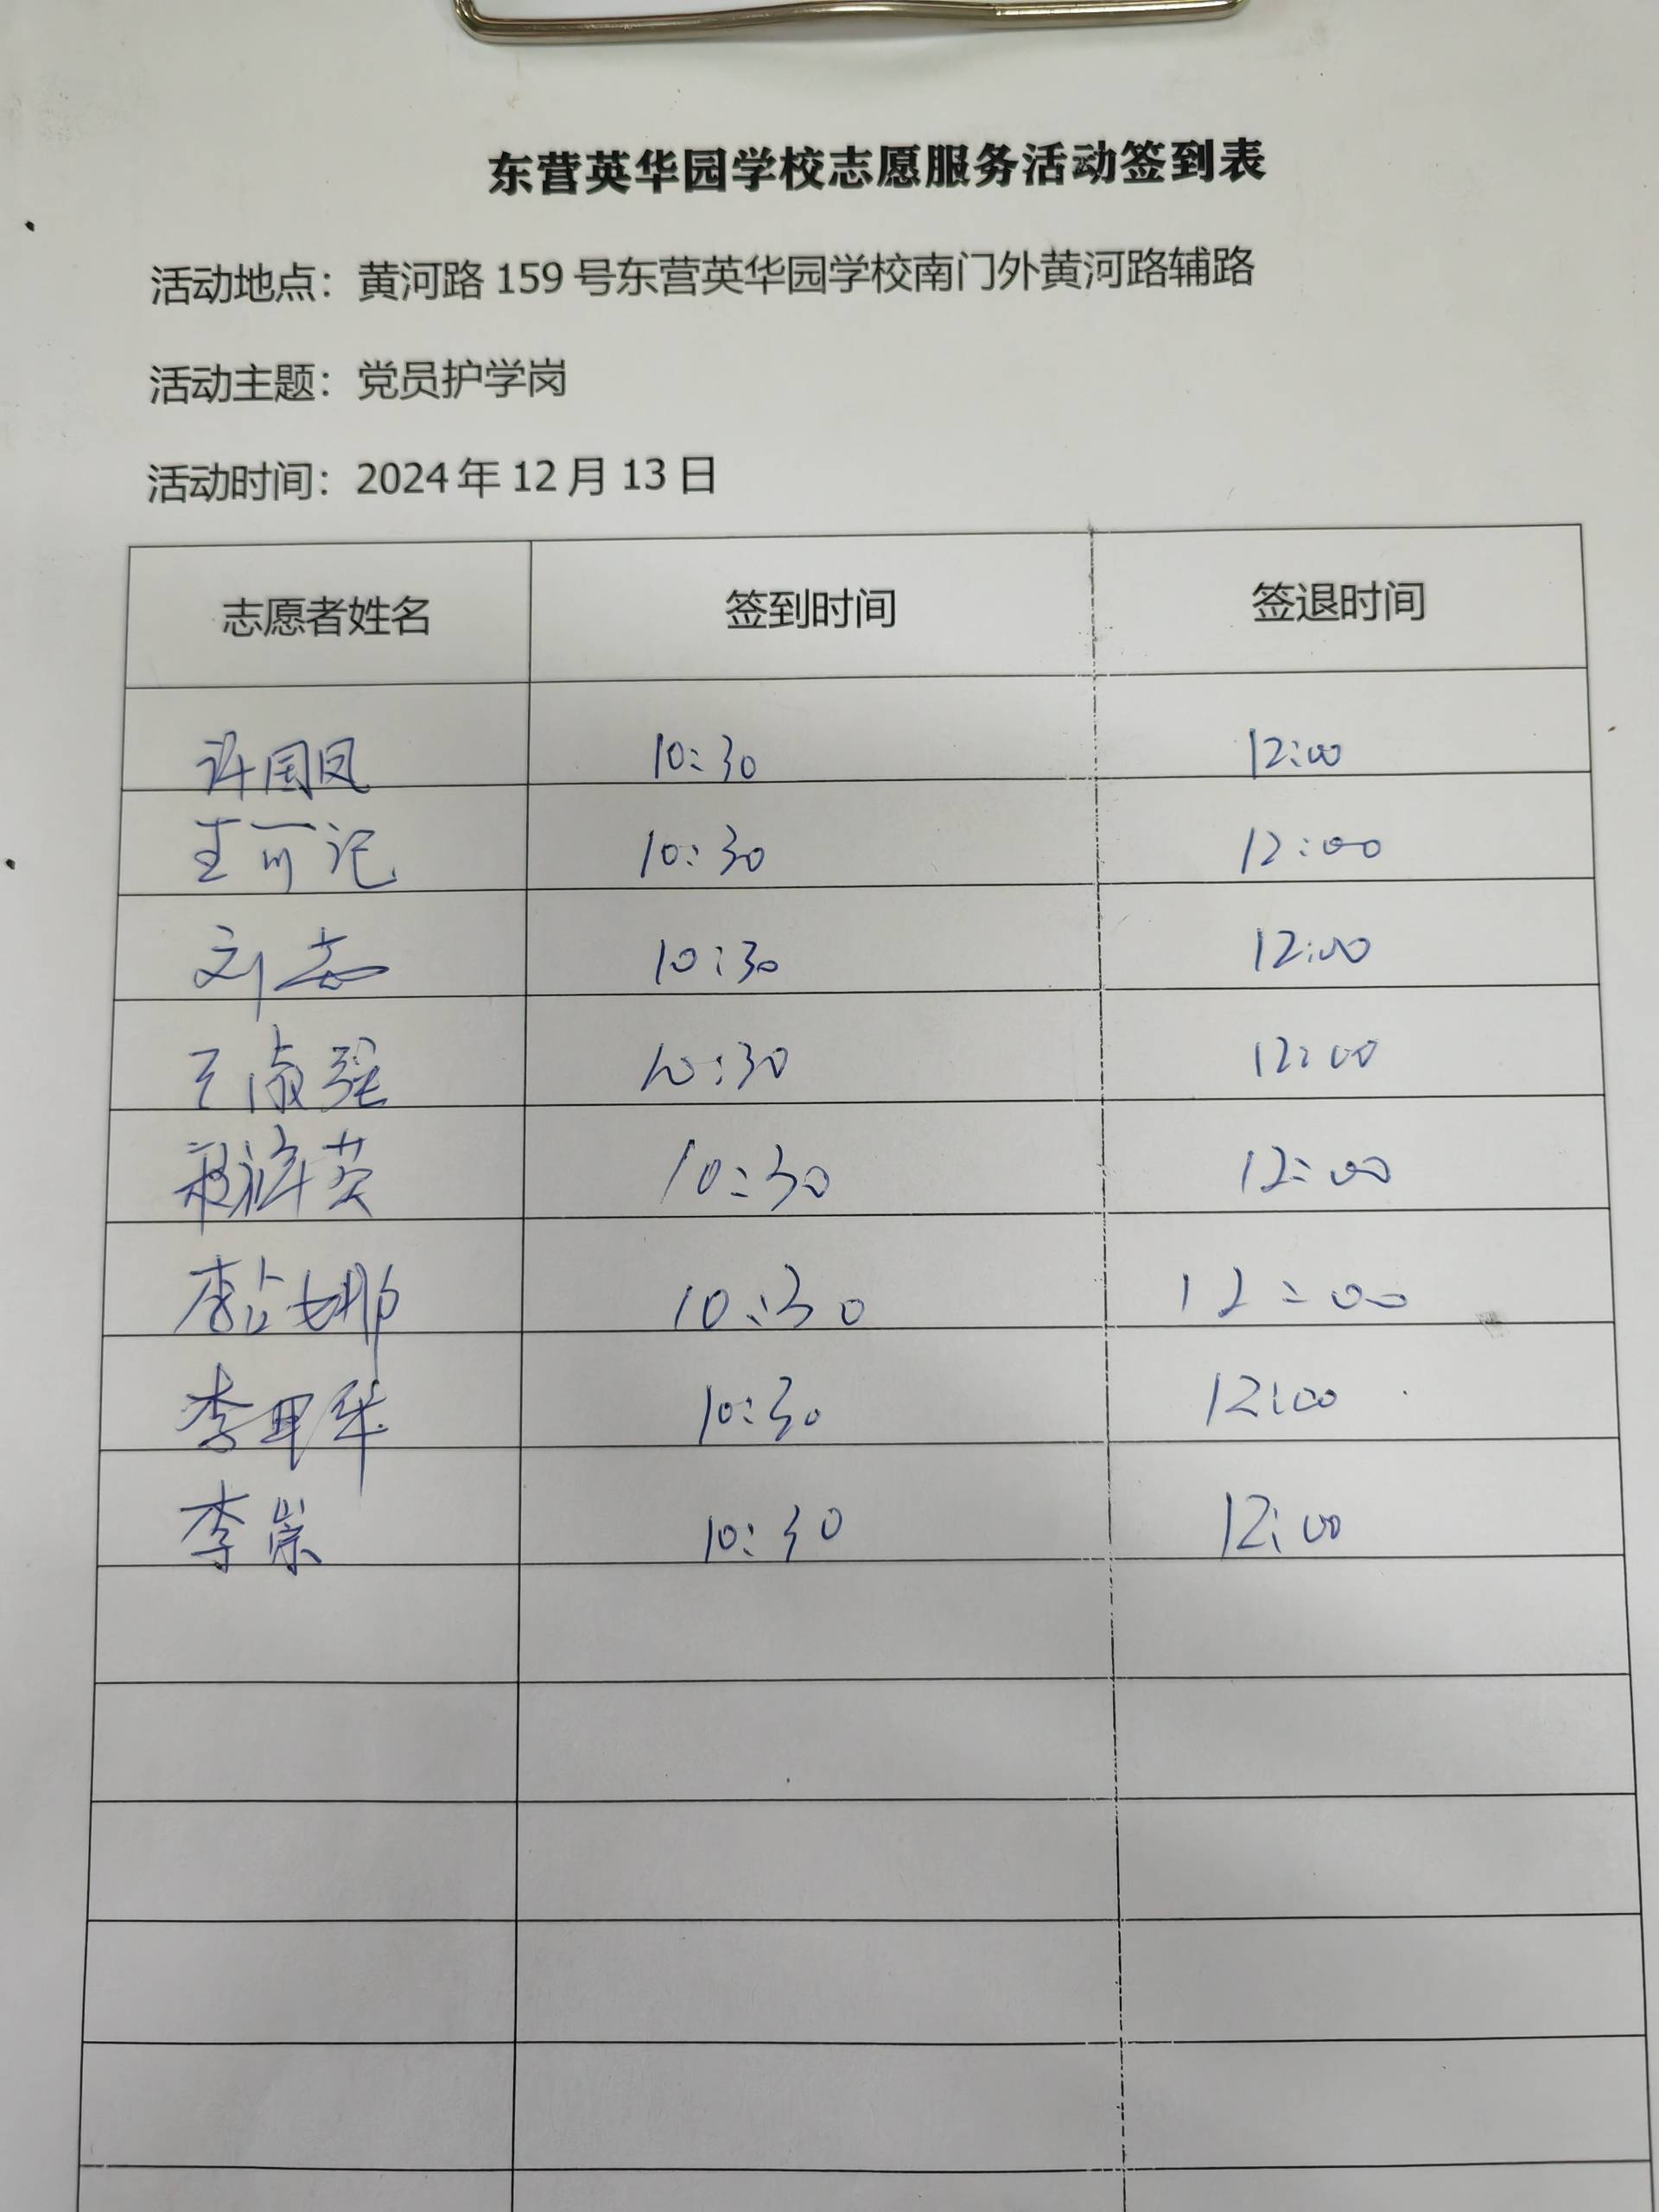 东营英华园学校志愿服务活动签到表
活动地点：黄河路 159 号东营英华园学校南门外黄河路辅路
活动主题：党员护学岗
活动时间：2024 年 12 月 13 日
志愿者姓名 签到时间 签退时间
许国凤 10:30 12:00
王可记 10:30 12:00
刘志 10:30 12:00
王淑强 10:30 12:00
英 10:30 12:00
李占娜 10:30 12:00
李 华 10:30 12:00
李崇 10:30 12:00